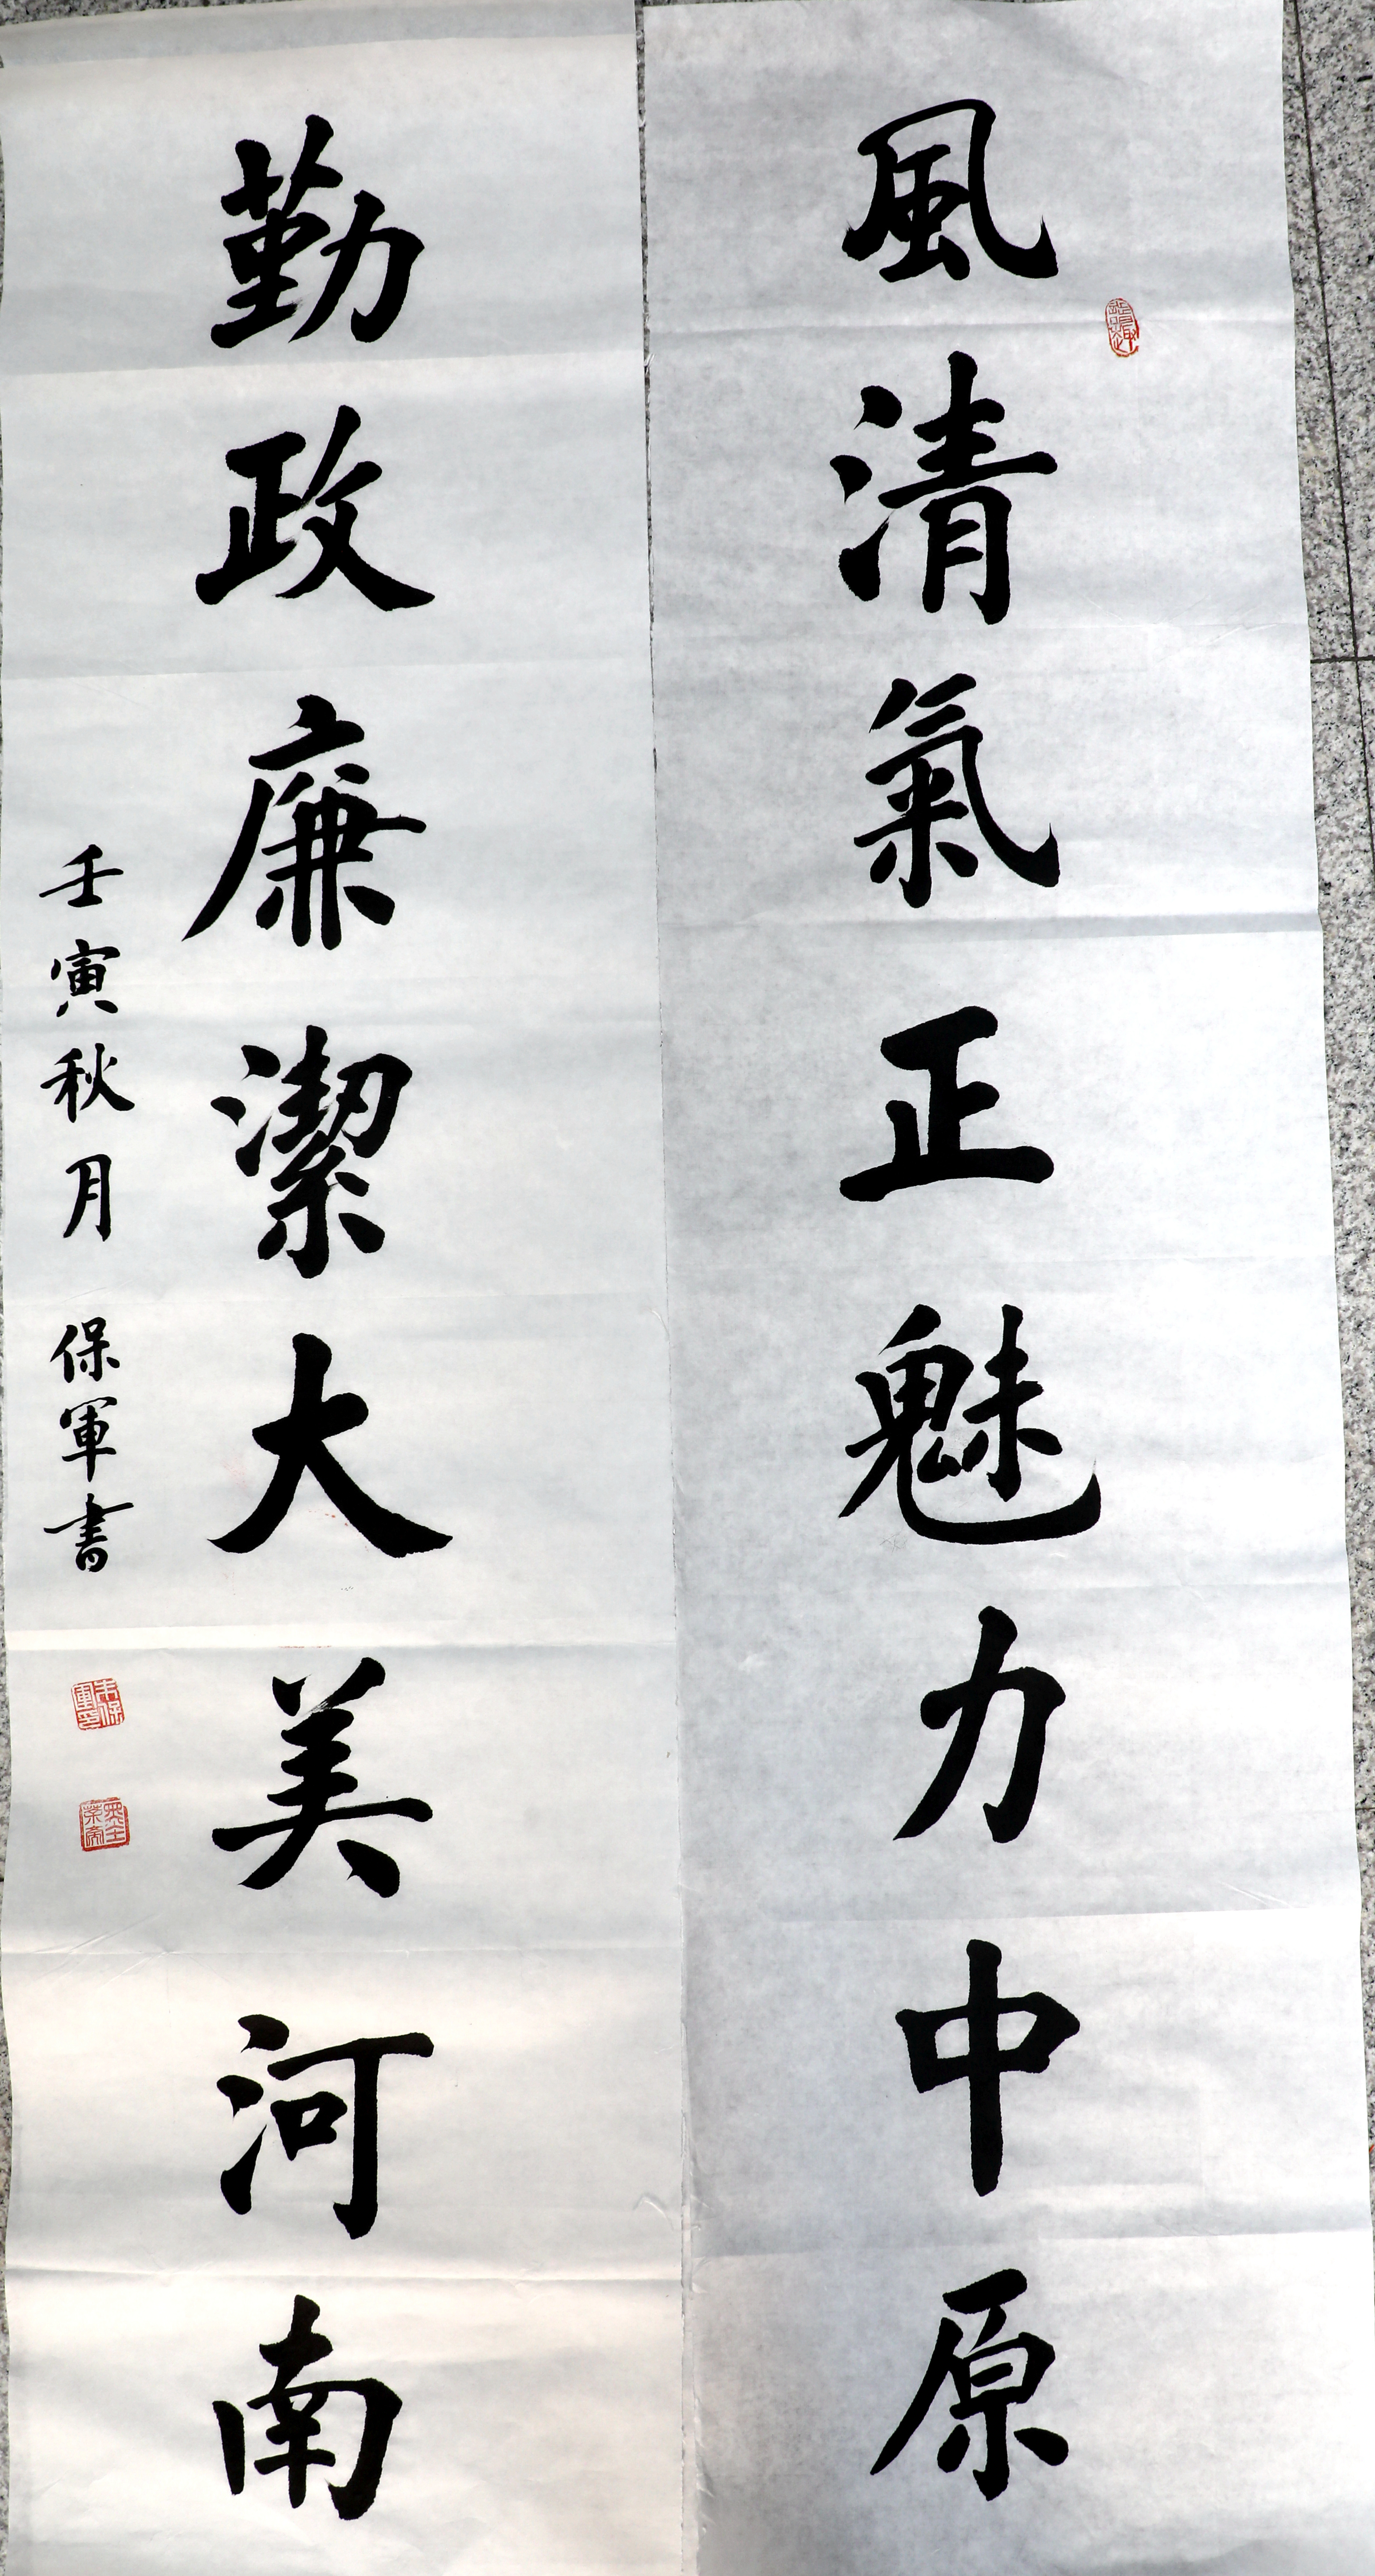 風清氣正魅力中原
勤政廉潔大美河南
壬寅秋月 保軍書